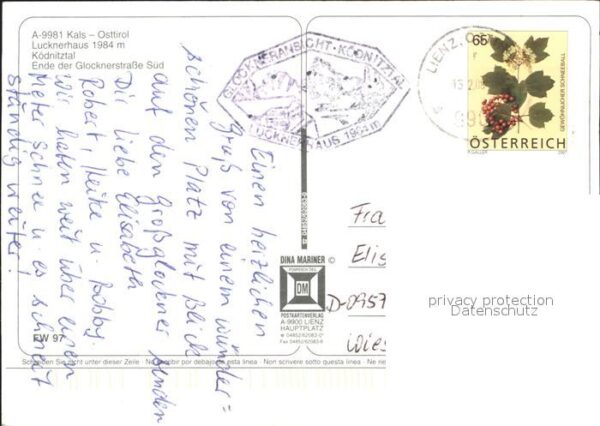 A-9981 Kals – Osttirol
Lucknerhaus 1984 m
Ködnitztal
Ende der Glocknerstraße Süd
GLOCKNERANSICHT · KÖDNITZTAL
LUCKNERHAUS 1984 m
LIENZ, O
13.2.08
65
GEWÖHNLICHER SCHNEEBALL
ÖSTERREICH
P. GALLER
2007
Einen herzlichen
Gruß von einem wunder=
schönen Platz mit Blick
auf den Großglockner senden
Dir liebe Elisabeth
Robert, Heike u. Bobby
Wir haben weit über einen
Meter Schnee u. es schneit
ständig weiter!
Fra
Elis
D-0957
Wies
DINA MARINER ©
DM
POSTKARTENVERLAG
A-9900 LIENZ
HAUPTPLATZ
EW 97
Schreiben Sie nicht unter dieser Zeile - No escribir por debajo de esta linea - Non scrivere sotto questa linea - Ne rien
privacy protection
Datenschutz